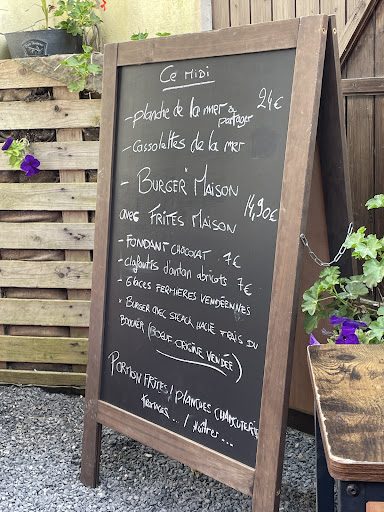 Ce Midi
- planche de la mer à partager 24€
- cassolettes de la mer
- BURGER* MAISON
avec FRITES MAISON 14,90€
- FONDANT CHOCOLAT 7€
- clafoutis d'antan abricots 7€
- Glaces FERMIERES VENDÉENNES
* BURGER AVEC STEACK HACHÉ FRAIS DU
BOUCHER (BOEUF ORIGINE VENDÉE)
PORTION FRITES / PLANCHES CHARCUTERIE
... / Huîtres ...